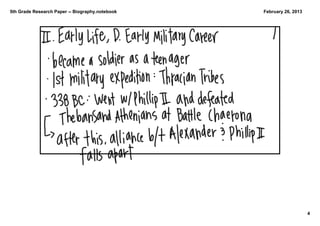 5th Grade Research Paper -- Biography.notebook February 26, 2013
II. Early Life, D. Early Military Career 1
· became a soldier as a teenager
· 1st military expedition: Thracian Tribes
· 338 BC: Went w/ Phillip II and defeated
Thebans and Athenians at Battle Chaerona
after this, alliance b/t Alexander & Phillip II
falls apart
4